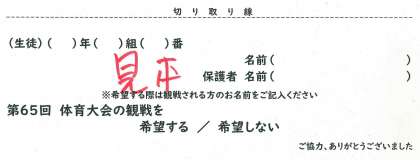 切り取り線
（生徒）（　）年（　）組（　）番
名前（　　　　）
見本
保護者　名前（　　　　）
※希望する際は観戦される方のお名前をご記入ください
第65回　体育大会の観戦を
希望する　／　希望しない
ご協力、ありがとうございました